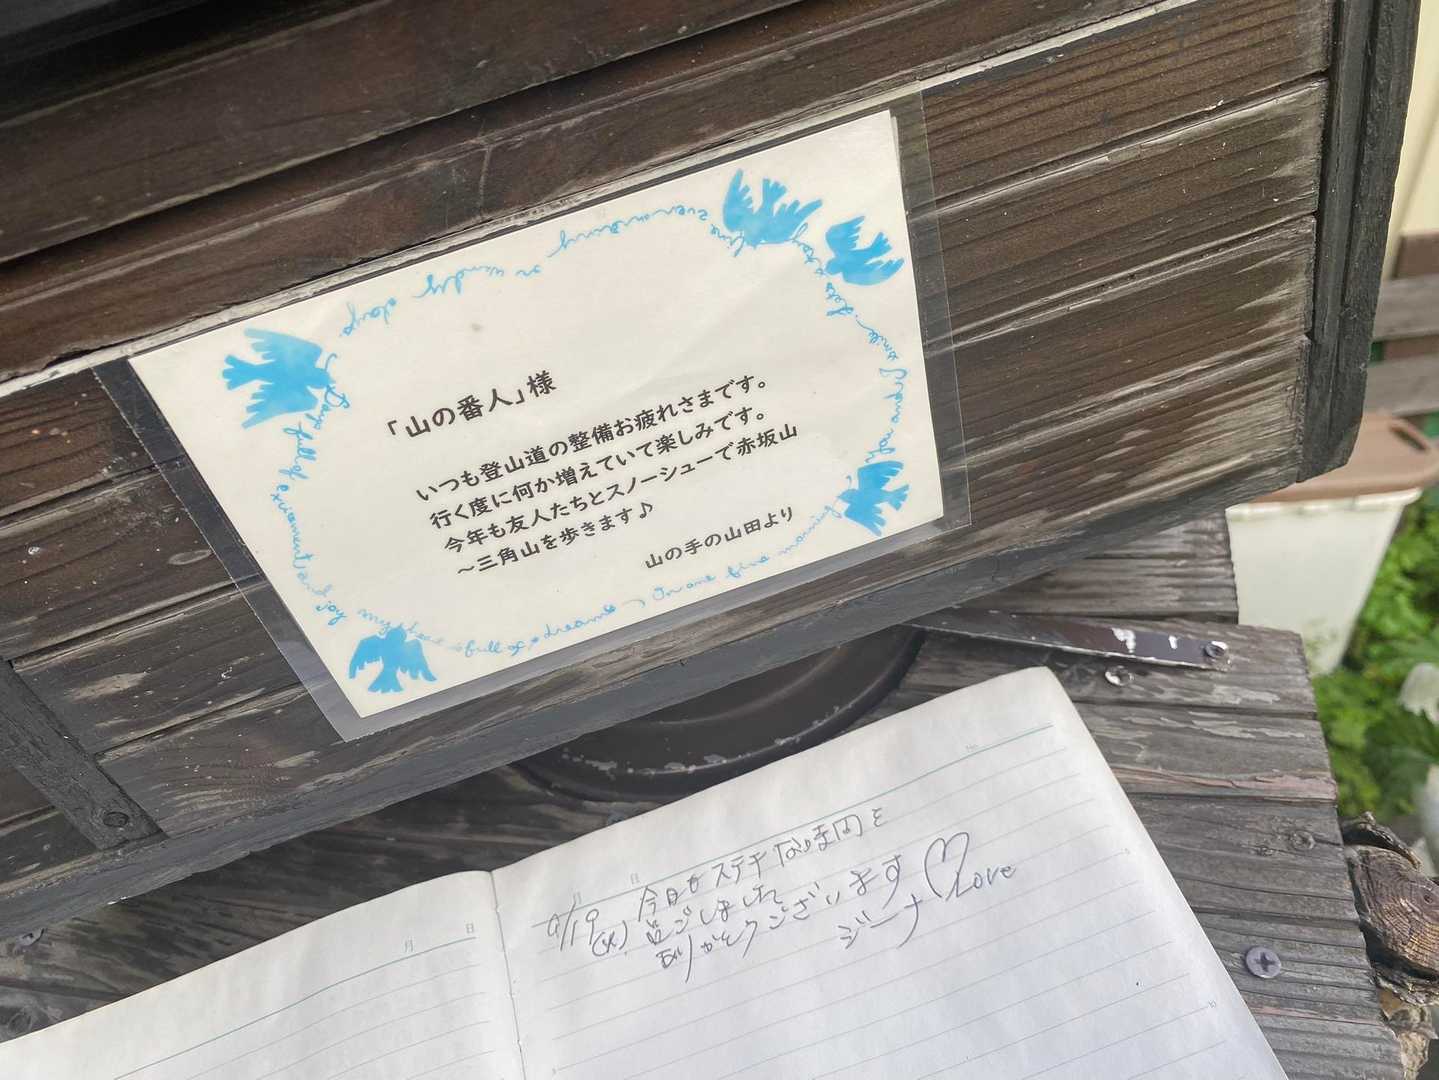 「山の番人」様
いつも登山道の整備お疲れさまです。
行く度に何か増えていて楽しみです。
今年も友人たちとスノーシューで赤坂山
～三角山を歩きます♪
山の手の山田より
Days full of excitement and joy
my heart is full of dreams
On one fine morning
or windy days
月 日
月 日
No.
9/19 今日もステキな時間を
(火) 過ごしました
ありがとうございます♡Love
ジーナ